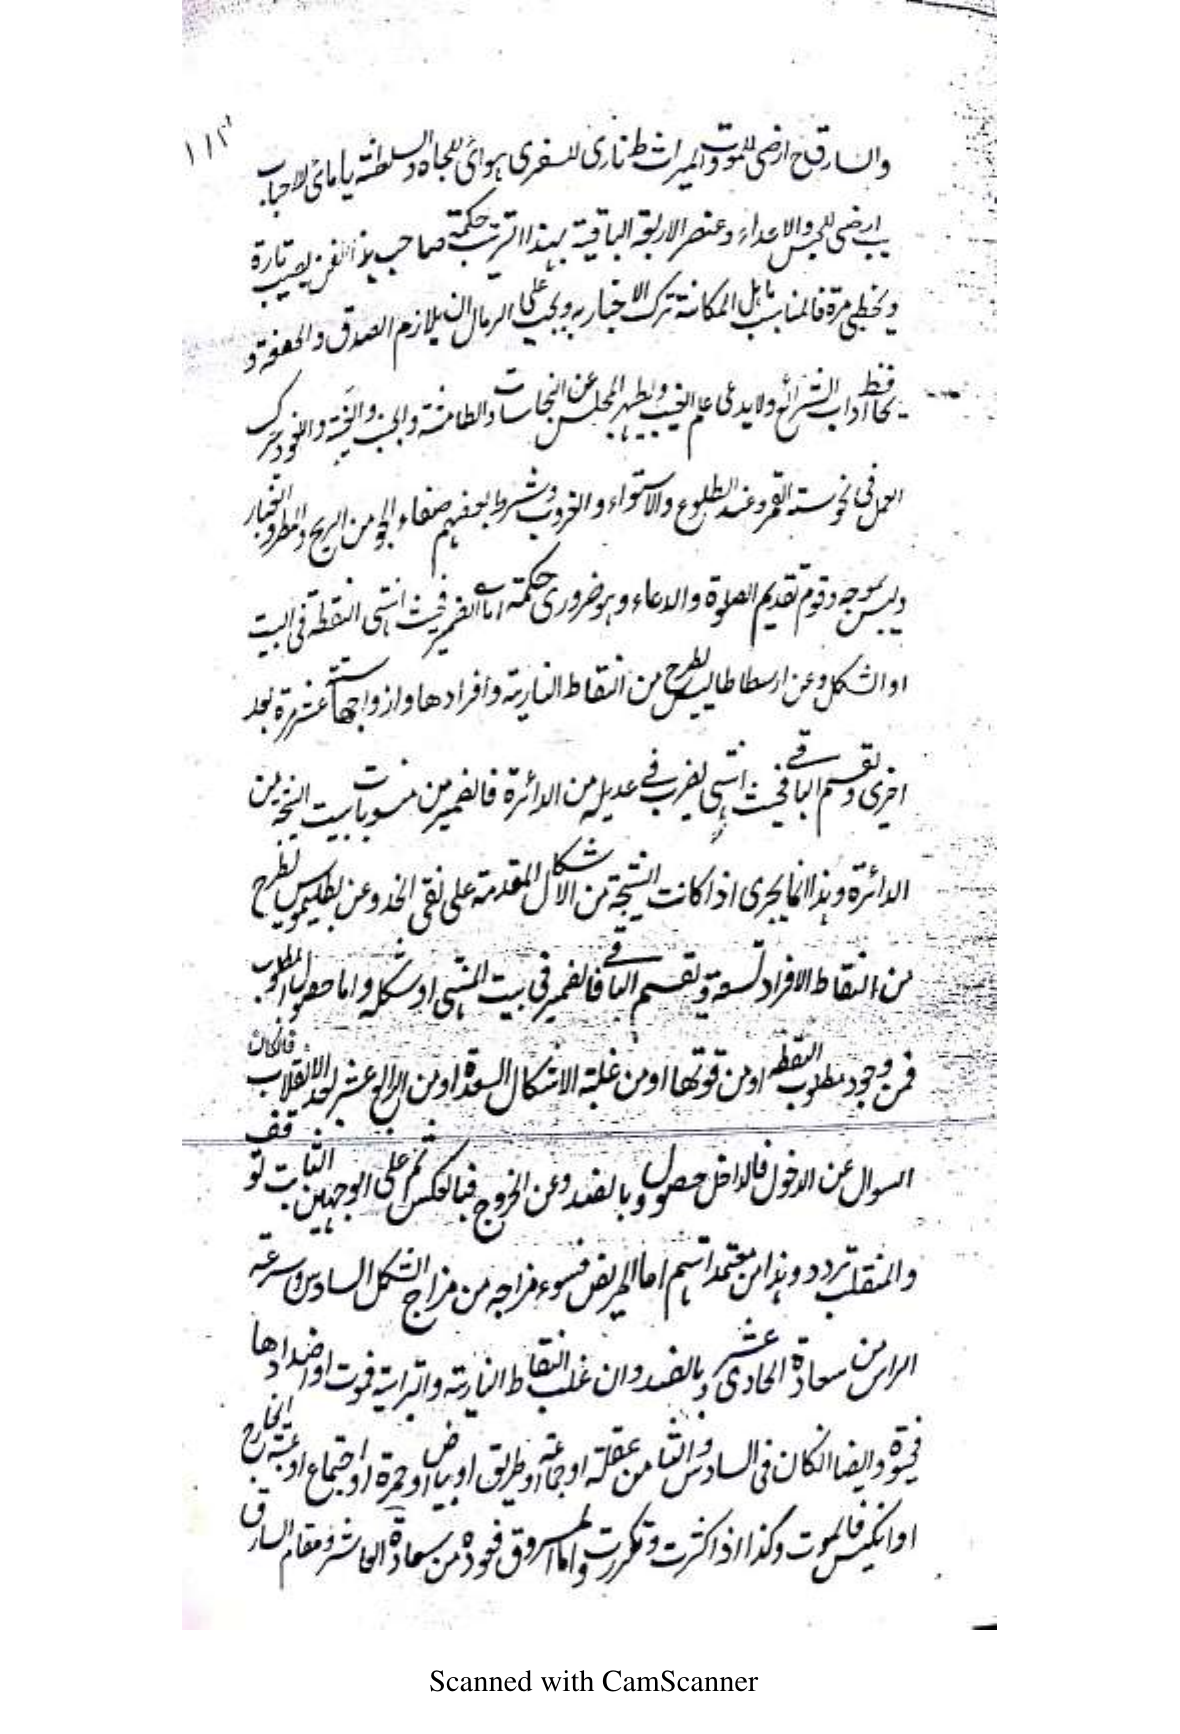 ١١٢
والسارق ح ارضی للموت والمیراث ط ناری للسفر ی هوائی للجاه والسلطنة یا مائی للاحباب
یب ارضی للحبس والاعداء وعنصر الاربعة الباقیة بهذا الترتیب حکمة صاحب هذا الفن یصیب تارة
ویخطی مرة فالمناسب باهل المکانة ترک الاخبار به ویجب علی الرمال ان یلازم الصدق والعفة و
یحافظ آداب الشرائع ولا یدعی علم الغیب ویطهر المجلس عن النجاسات والطامثة والجنب والخمر
العمل فی نحوسة القمر وعند الطلوع والاستواء والغروب وشرط بعضهم صفاء الجو من الریح والمطر والغبار
ولیس بموجه وقوم تقدیم الصلوة والدعاء وهو ضروری حکمة اما الضمیر فحیث انتهی النقطة فی البیت
او الشکل وعن ارسطاطالیس یطرح من النقاط الناریة وافرادها وازواجها ستة عشر مرة بعد
اخری ویقسم الباقی فحیث انتهی یضرب فی عدیله من الدائرة فالضمیر من منسوبات بیت النتیجة من
الدائرة وهذا انما یجری اذا کانت النتیجة من الاشکال المقدمة علی نقی الخد وعن بطلیموس یطرح
من النقاط الافراد تسعة ویقسم الباقی فالضمیر فی بیت المنتهی او شکله واما حصول المطلوب
فمن وجود مطلوب النقطة او من قوتها او من غلبة الاشکال السعدة او من الرابع عشر بعد الانقلاب فان کان
السوال عن الدخول فالداخل حصول وبالضد وعن الخروج فبالعکس ثم علی الوجهین الثابت توقف
والمنقلب تردد وهذا من معتمداتهم اما المریض فسوء مزاجه من مزاج الشکل السادس وسرعة
البرء من سعادة الحادی عشر وبالضد وان غلب النقاط الناریة والترابیة فموت او اضدادها
فحیوة وایضا ان کان فی السادس والثامن عقلة او جماعة او طریق او بیاض او حمرة او اجتماع او عتبة الخارج
او انکیس فالموت وکذا اذا کثرت وتکررت واما المسروق فعوده من سعادة العاشر ومقام السارق
Scanned with CamScanner